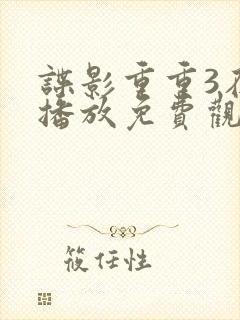 諜影重重3在
播放免費觀
筱任性